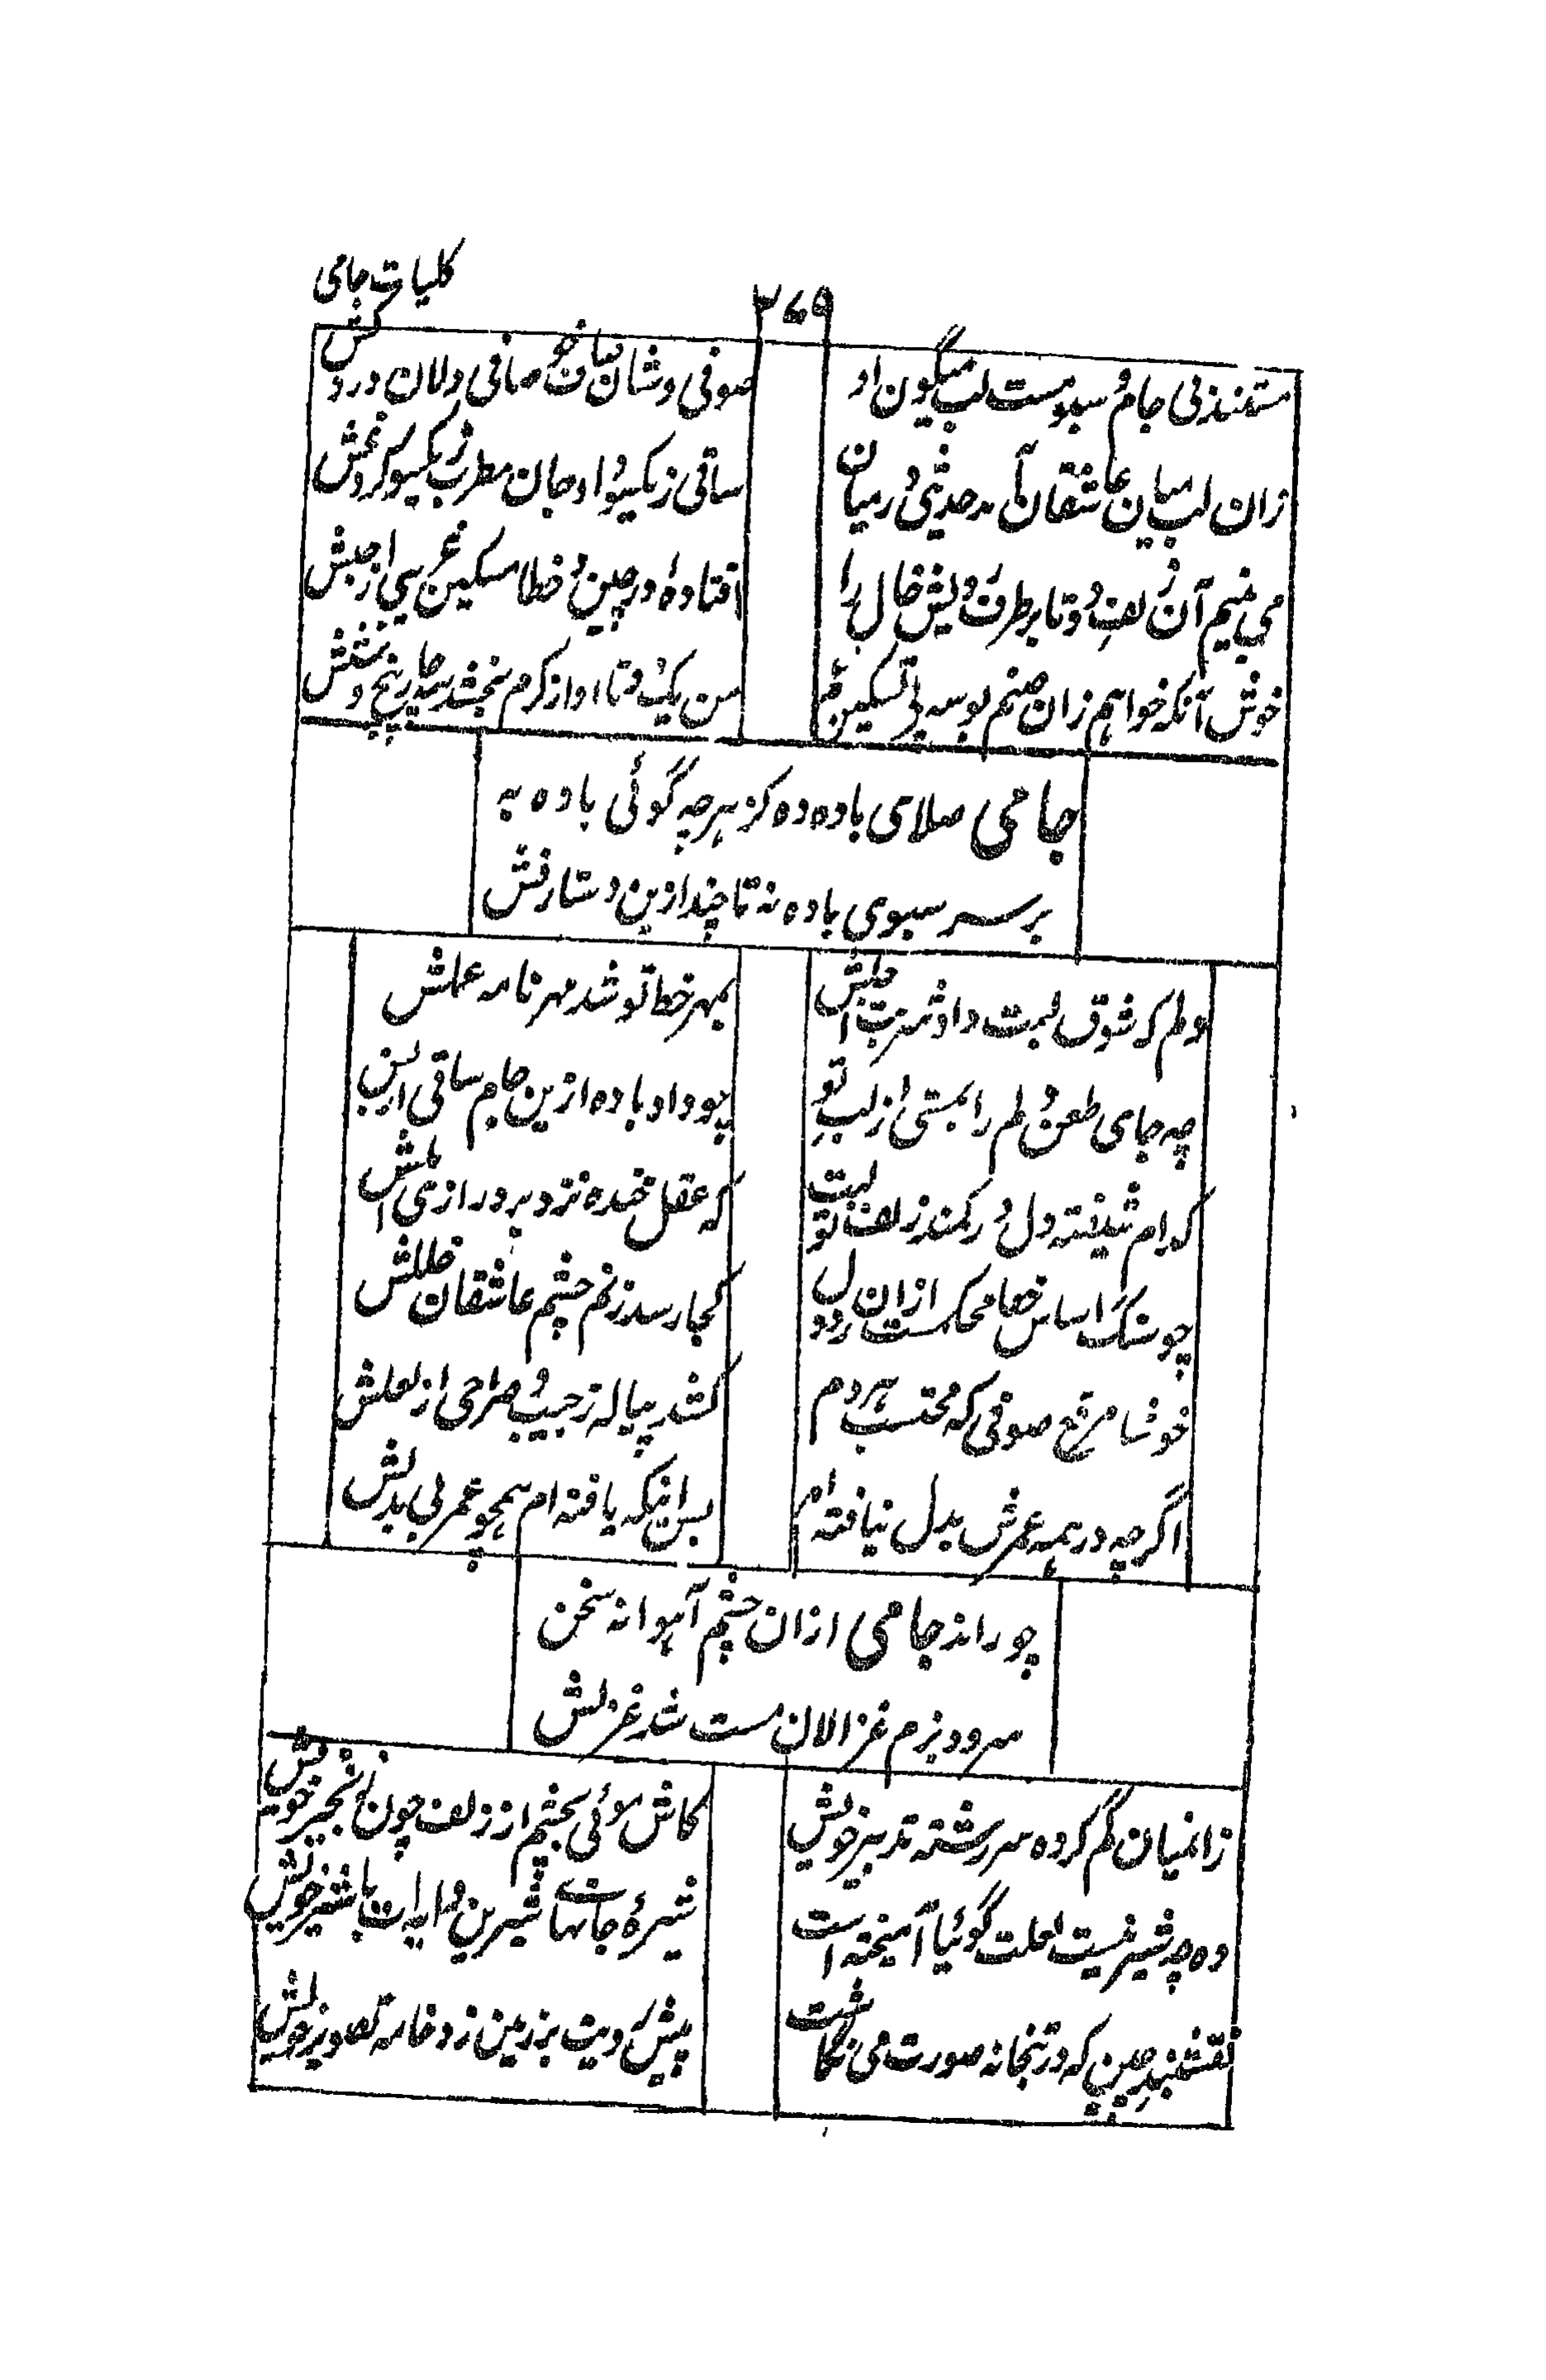 کلیات جامی
۳۷۹
مستند بی جام و سبو مست لب میگون او
صوفی وشان صاف خو صافی دلان دردکش
زان لب میان عاشقان آمد حدیثی در میان
ساقی ز یکسو داد جان مطرب ز یکسو کرد غش
می بینم آن زلف دوتا بر طرف رویش خال را
افتاده در چین و خطا مسکین غریبی از حبش
خوش آنکه خواهم زان صنم بوسه پی تسکین غم
من یک دو تا او از کرم بخشد چهار پنج و شش
جامی صلای باده ده کز هرچه گوئی باده به
بر سر سبوی باده نه تا چند ازین دستارفش
دلم که شوق لبت داد شربت اجلش
بمهر خط تو شد مهر نامه عملش
چه جای طعن دلم را بمستی از لب تو
چو داد باده ازین جام ساقی ازلش
کدام شیفته دل در کمند زلف تو بست
که عقل خنده نزد بر درازی املش
چو سنگ اساس خفا محکمست ازان در دل
کجا رسد ز نم چشم عاشقان خللش
خوشا مرقع صوفی که محتسب هر دم
کشد پیاله ز جیب و صراحی از بغلش
اگرچه در همه عمرش بدل نیافته ام
بس اینکه یافته ام همچو عمر بی بدلش
چو راند جامی ازان چشم آهوانه سخن
سرود بزم غزالان مست شد غزلش
زانمیان گم کرده سر رشته تدبیر خویش
کاش موئی بخشیم از زلف چون زنجیر خویش
وه چه شیرینیست لعلت گوئیا آمیخته است
شیرهٔ جانهای شیرین دایه ات با شیر خویش
نقشبند چین که در بتخانه صورت می نگاشت
پیش رویت بر زمین زد خامه تصویر خویش